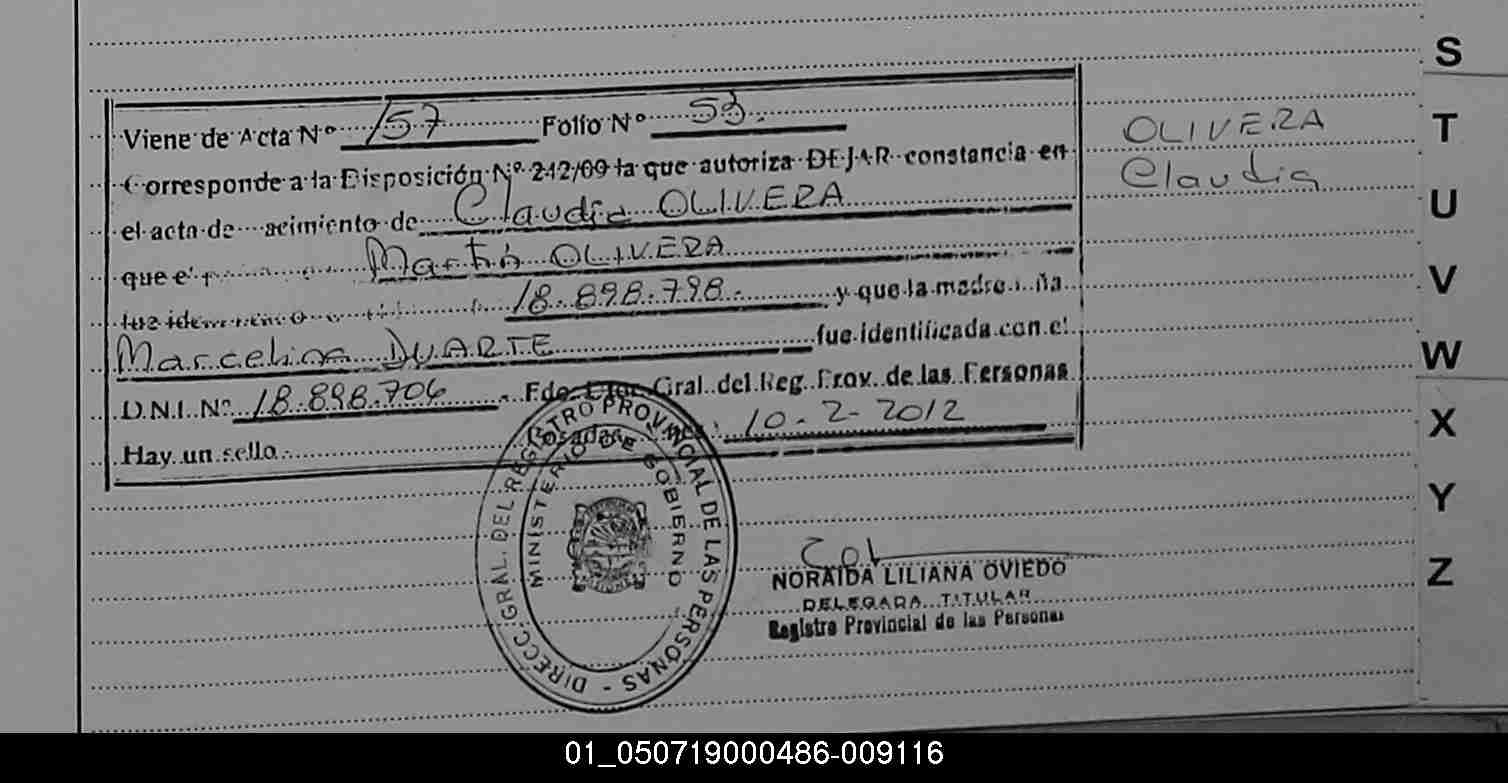 Viene de Acta Nº 157 Folio Nº 53.
Corresponde a la Disposición Nº 212/09 la que autoriza DEJAR constancia en
el acta de acimiento de Claudia OLIVERA
que el Martín OLIVERA
fue 18.898.798. y que la madre ña
Marcelina DUARTE fue identificada con el
D.N.I. Nº 18.898.706 Fdo Gral. del Reg. Prov. de las Personas
Hay un sello Posadas 10-2-2012
OLIVERA
Claudia
DIRECC. GRAL. DEL REGISTRO PROVINCIAL DE LAS PERSONAS -
MINISTERIO DE GOBIERNO
NORAIDA LILIANA OVIEDO
DELEGADA TITULAR
Registro Provincial de las Personas
S
T
U
V
W
X
Y
Z
01_050719000486-009116